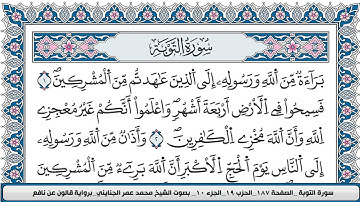 سُورَةُ التَّوْبَةِ
بَرَآءَةٌ مِّنَ ٱللَّهِ وَرَسُولِهِۦٓ إِلَى ٱلَّذِينَ عَٰهَدتُّم مِّنَ ٱلْمُشْرِكِينَ ١
فَسِيحُوا۟ فِى ٱلْأَرْضِ أَرْبَعَةَ أَشْهُرٍ وَٱعْلَمُوٓا۟ أَنَّكُمْ غَيْرُ مُعْجِزِے
ٱللَّهِ وَأَنَّ ٱللَّهَ مُخْزِے ٱلْكَٰفِرِينَ ٢ وَأَذَٰنٌ مِّنَ ٱللَّهِ وَرَسُولِهِۦٓ
إِلَى ٱلنَّاسِ يَوْمَ ٱلْحَجِّ ٱلْأَكْبَرِ أَنَّ ٱللَّهَ بَرِےٓءٌ مِّنَ ٱلْمُشْرِكِينَ
سورة التوبة _ الصفحة ١٨٧ _ الحزب ١٩ _ الجزء ١٠ _ بصوت الشيخ محمد عمر الجنايني _ برواية قالون عن نافع